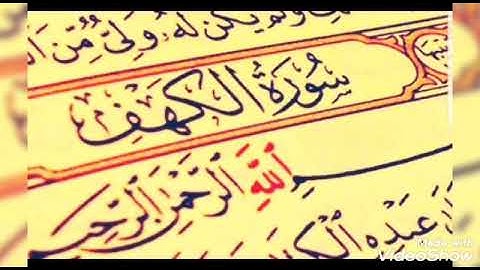 وَلَمْ يَكُن لَّهُۥ وَلِىٌّ مِّنَ
سُورَةُ الكَهْفِ
ـسْمِ ٱللَّهِ ٱلرَّحْمَـٰنِ ٱلرَّحِيمِ
عَبْدِهِ ٱلْكِـ
Made with
VideoShow